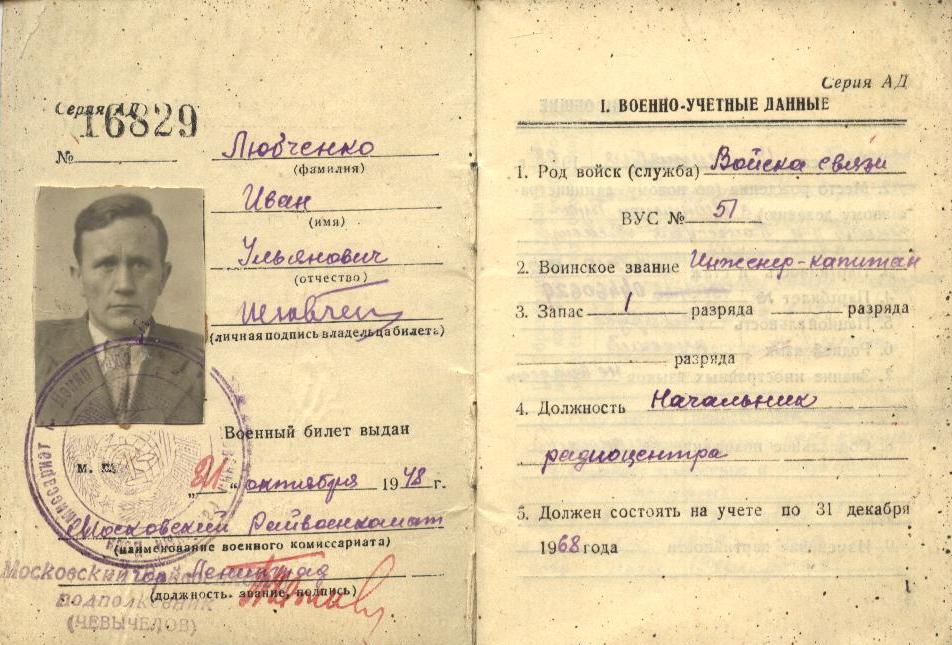 Серия АД
16829
№
Любченко
(фамилия)
Иван
(имя)
Ульянович
(отчество)
(личная подпись владельца билета)
Военный билет выдан
м. п.
„21“ октября 1948 г.
Московский Райвоенкомат
(наименование военного комиссариата)
гор. Ленинград
(должность, звание, подпись)
Московский
ПОДПОЛКОВНИК
(ЧЕВЫЧЕЛОВ)
Серия АД
I. ВОЕННО-УЧЕТНЫЕ ДАННЫЕ
1. Род войск (служба) Войска связи
ВУС № 51
2. Воинское звание Инженер-капитан
3. Запас 1 разряда разряда
разряда
4. Должность Начальник
радиоцентра
5. Должен состоять на учете по 31 декабря
1968 года